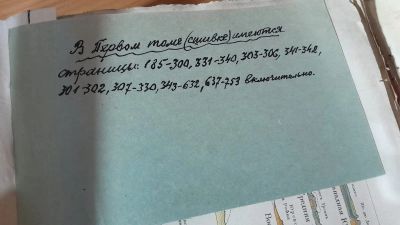 В Первом томе (сшивке) имеются
страницы: 185-300, 331-340, 303-306, 341-348,
301-302, 307-330, 349-632, 637-753 включительно.